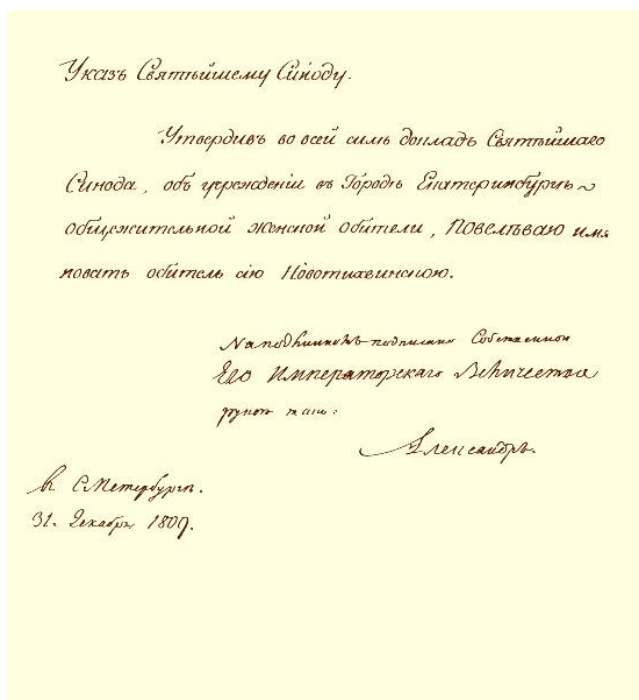 Указъ Святѣйшему Сѵноду.
Утвердивъ во всей силѣ докладъ Святѣйшаго
Синода, объ учрежденіи въ Городѣ Екатеринбургѣ
общежительной женской обители, Повелѣваю име
новать обитель сію Новотихвинскою.
На подлинномъ подписано Собственною
Его Императорскаго Величества
рукою тако:
Александръ.
в С. Петербургѣ.
31. Декабря 1809.